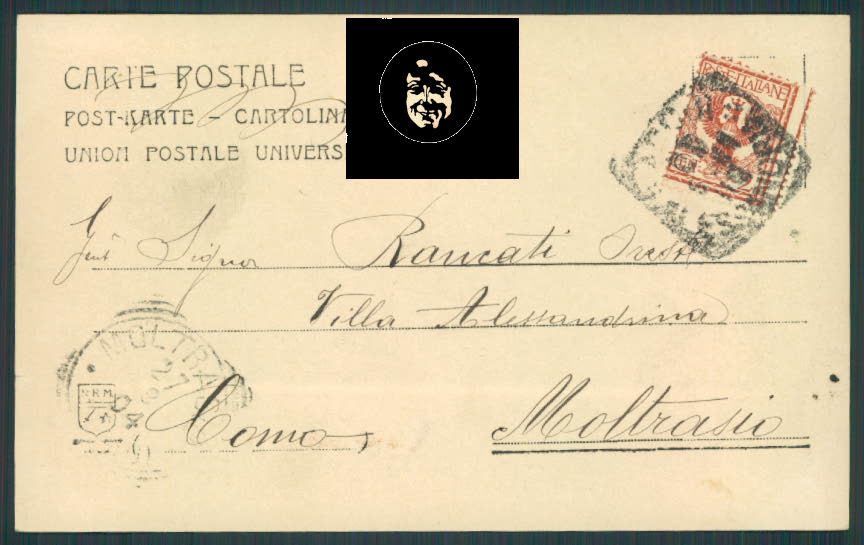 CARTE POSTALE
POST-KARTE - CARTOLINA
UNION POSTALE UNIVERS
POSTE ITALIANE
Gent Signor Rancati
Villa Alessandrina
Como, Moltrasio
MOLTRA
27
04